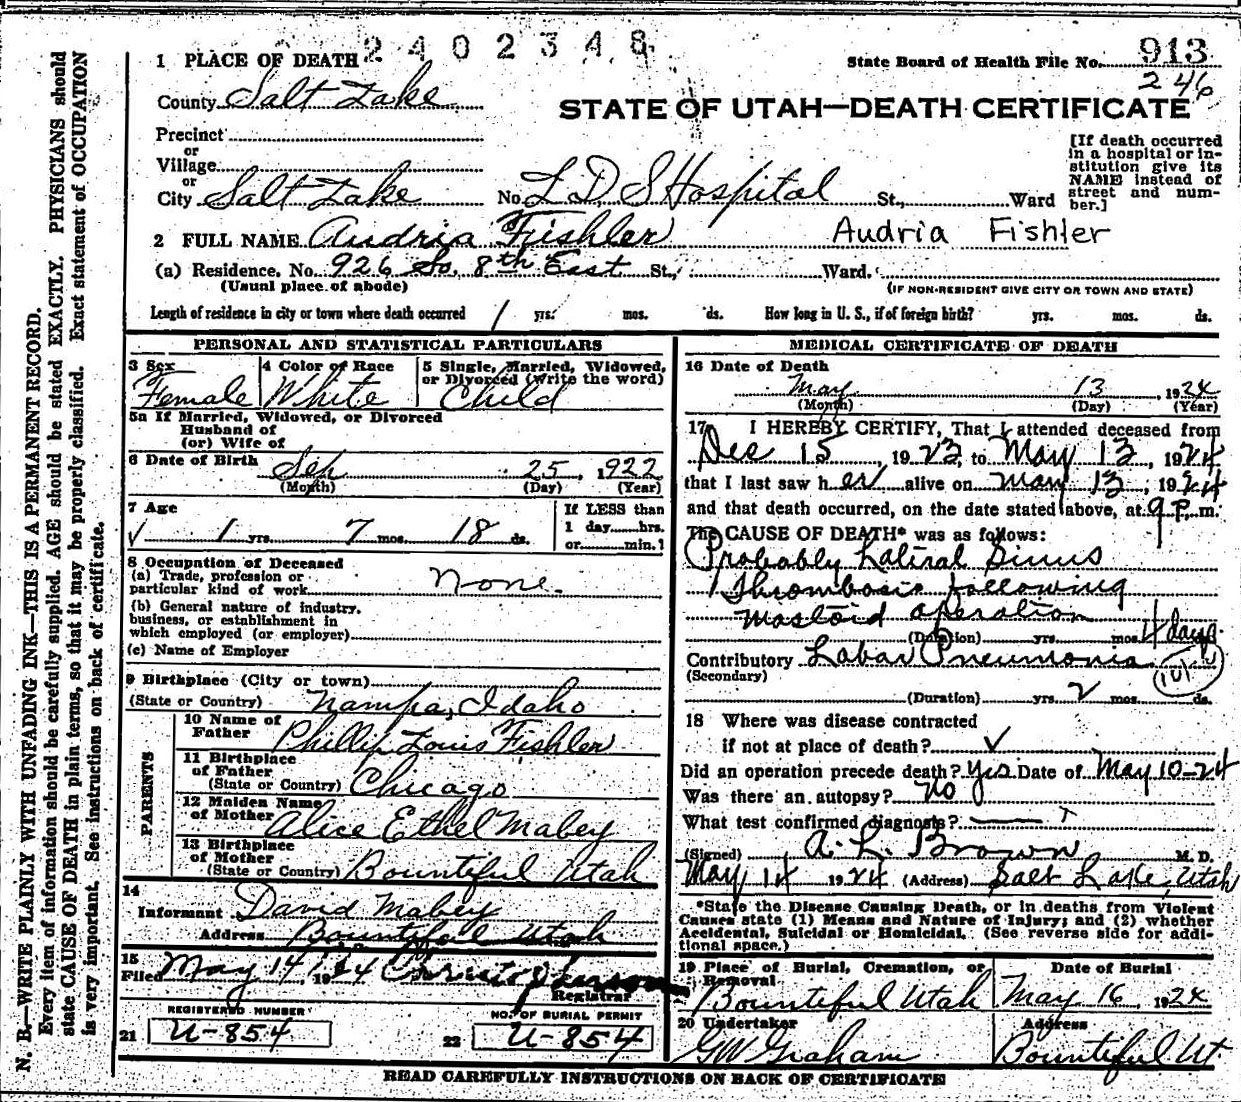 2402348
1 PLACE OF DEATH
State Board of Health File No. 913
246
County Salt Lake
STATE OF UTAH—DEATH CERTIFICATE
Precinct
or
Village
or
City Salt Lake No. L. D. S Hospital St., Ward
[If death occurred
in a hospital or in-
stitution give its
NAME instead of
street and num-
ber.]
2 FULL NAME Audria Fishler Audria Fishler
(a) Residence. No. 926 So. 8th East St., Ward.
(Usual place of abode) (IF NON-RESIDENT GIVE CITY OR TOWN AND STATE)
Length of residence in city or town where death occurred 1 yrs. mos. ds. How long in U. S., if of foreign birth? yrs. mos. ds.
PERSONAL AND STATISTICAL PARTICULARS
3 Sex
Female
4 Color of Race
White
5 Single, Married, Widowed,
or Divorced (Write the word)
Child
5a If Married, Widowed, or Divorced
Husband of
(or) Wife of
6 Date of Birth Sep 25, 1922
(Month) (Day) (Year)
7 Age
1 yrs. 7 mos. 18 ds.
If LESS than
1 day......hrs.
or......min.]
8 Occupation of Deceased
(a) Trade, profession or
particular kind of work None.
(b) General nature of industry.
business, or establishment in
which employed (or employer)
(c) Name of Employer
9 Birthplace (City or town)
(State or Country) Nampa, Idaho
PARENTS
10 Name of
Father Phillip Louis Fishler
11 Birthplace
of Father
(State or Country) Chicago
12 Maiden Name
of Mother Alice Ethel Mabey
13 Birthplace
of Mother
(State or Country) Bountiful Utah
14
Informant David Mabey
Address Bountiful Utah
15
Filed May 14, 1924
Registrar
REGISTERED NUMBER
21 U-854
NO. OF BURIAL PERMIT
22 U-854
MEDICAL CERTIFICATE OF DEATH
16 Date of Death
May 13, 1924
(Month) (Day) (Year)
17 I HEREBY CERTIFY, That I attended deceased from
Dec 15, 1923, to May 13, 1924
that I last saw her alive on May 13, 1924
and that death occurred, on the date stated above, at 9 P. m.
The CAUSE OF DEATH* was as follows:
Probably Lateral Sinus
Thrombosis following
mastoid operation
(Duration) yrs. mos. 4 days
Contributory Lobar Pneumonia
(Secondary)
(Duration) yrs. 2 mos. ds.
18 Where was disease contracted
if not at place of death? ✓
Did an operation precede death? Yes Date of May 10-24
Was there an autopsy? No
What test confirmed diagnosis? —
(Signed) A. L. Brown M. D.
May 14 1924 (Address) Salt Lake, Utah
*State the Disease Causing Death, or in deaths from Violent
Causes state (1) Means and Nature of Injury; and (2) whether
Accidental, Suicidal or Homicidal. (See reverse side for addi-
tional space.)
19 Place of Burial, Cremation, or
Removal
Bountiful Utah
Date of Burial
May 16, 1924
20 Undertaker
GW Graham
Address
Bountiful Ut.
READ CAREFULLY INSTRUCTIONS ON BACK OF CERTIFICATE
N. B.—WRITE PLAINLY WITH UNFADING INK—THIS IS A PERMANENT RECORD.
Every item of information should be carefully supplied. AGE should be stated EXACTLY. PHYSICIANS should
state CAUSE OF DEATH in plain terms, so that it may be properly classified. Exact statement of OCCUPATION
is very important. See instructions on back of certificate.